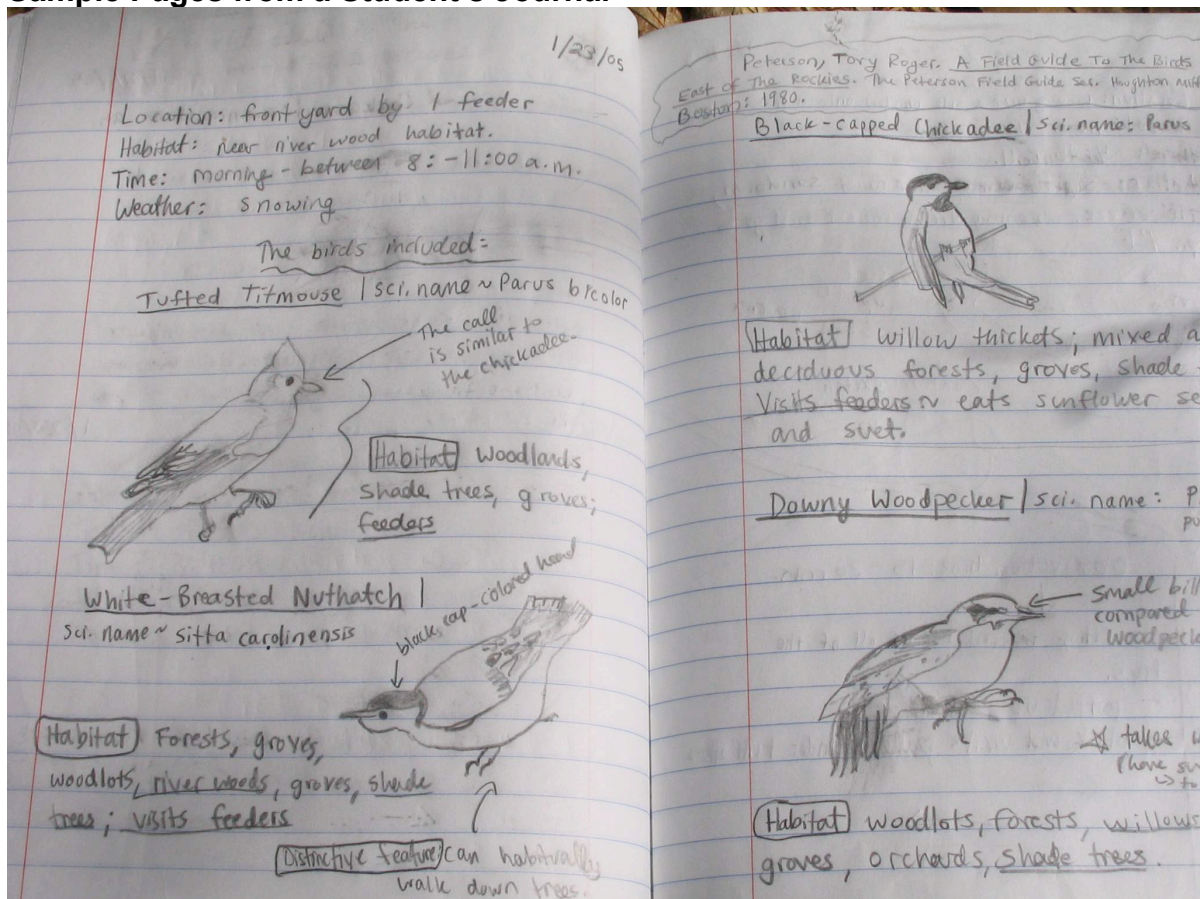 Sample Pages from a Student's Journal
1/23/05
Location: front yard by 1 feeder
Habitat: near river wood habitat.
Time: morning - between 8: - 11:00 a.m.
Weather: snowing
The birds included:
Tufted Titmouse | sci. name ~ Parus bicolor
The call
is similar to
the chickadee.
Habitat woodlands,
shade trees, groves;
feeders
White-Breasted Nuthatch |
sci. name ~ sitta carolinensis
black, cap-colored head
Habitat Forests, groves,
woodlots, river woods, groves, shade
trees; visits feeders
Distinctive feature can habitually
walk down trees.
Peterson, Tory Roger. A Field Guide To The Birds
East of The Rockies. The Peterson Field Guide Ser. Houghton
Boston: 1980.
Black-capped Chickadee | sci. name: Parus
Habitat willow thickets; mixed
deciduous forests, groves, shade
Visits feeders ~ eats sunflower
and suet.
Downy Woodpecker | sci. name:
small bill
compared
Habitat woodlots, forests, willows
groves, orchards, shade trees.
takes